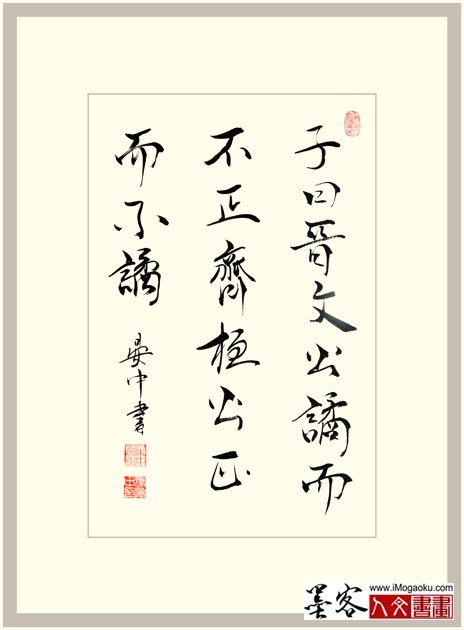 子曰晉文公譎而
不正齊桓公正
而不譎
晏中書
www.iMogaoku.com
墨客
人文書畫